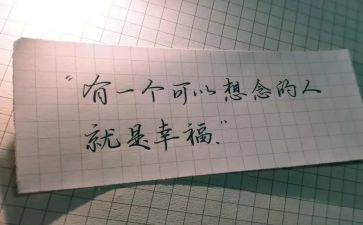 "有一个可以想念的人
就是幸福."